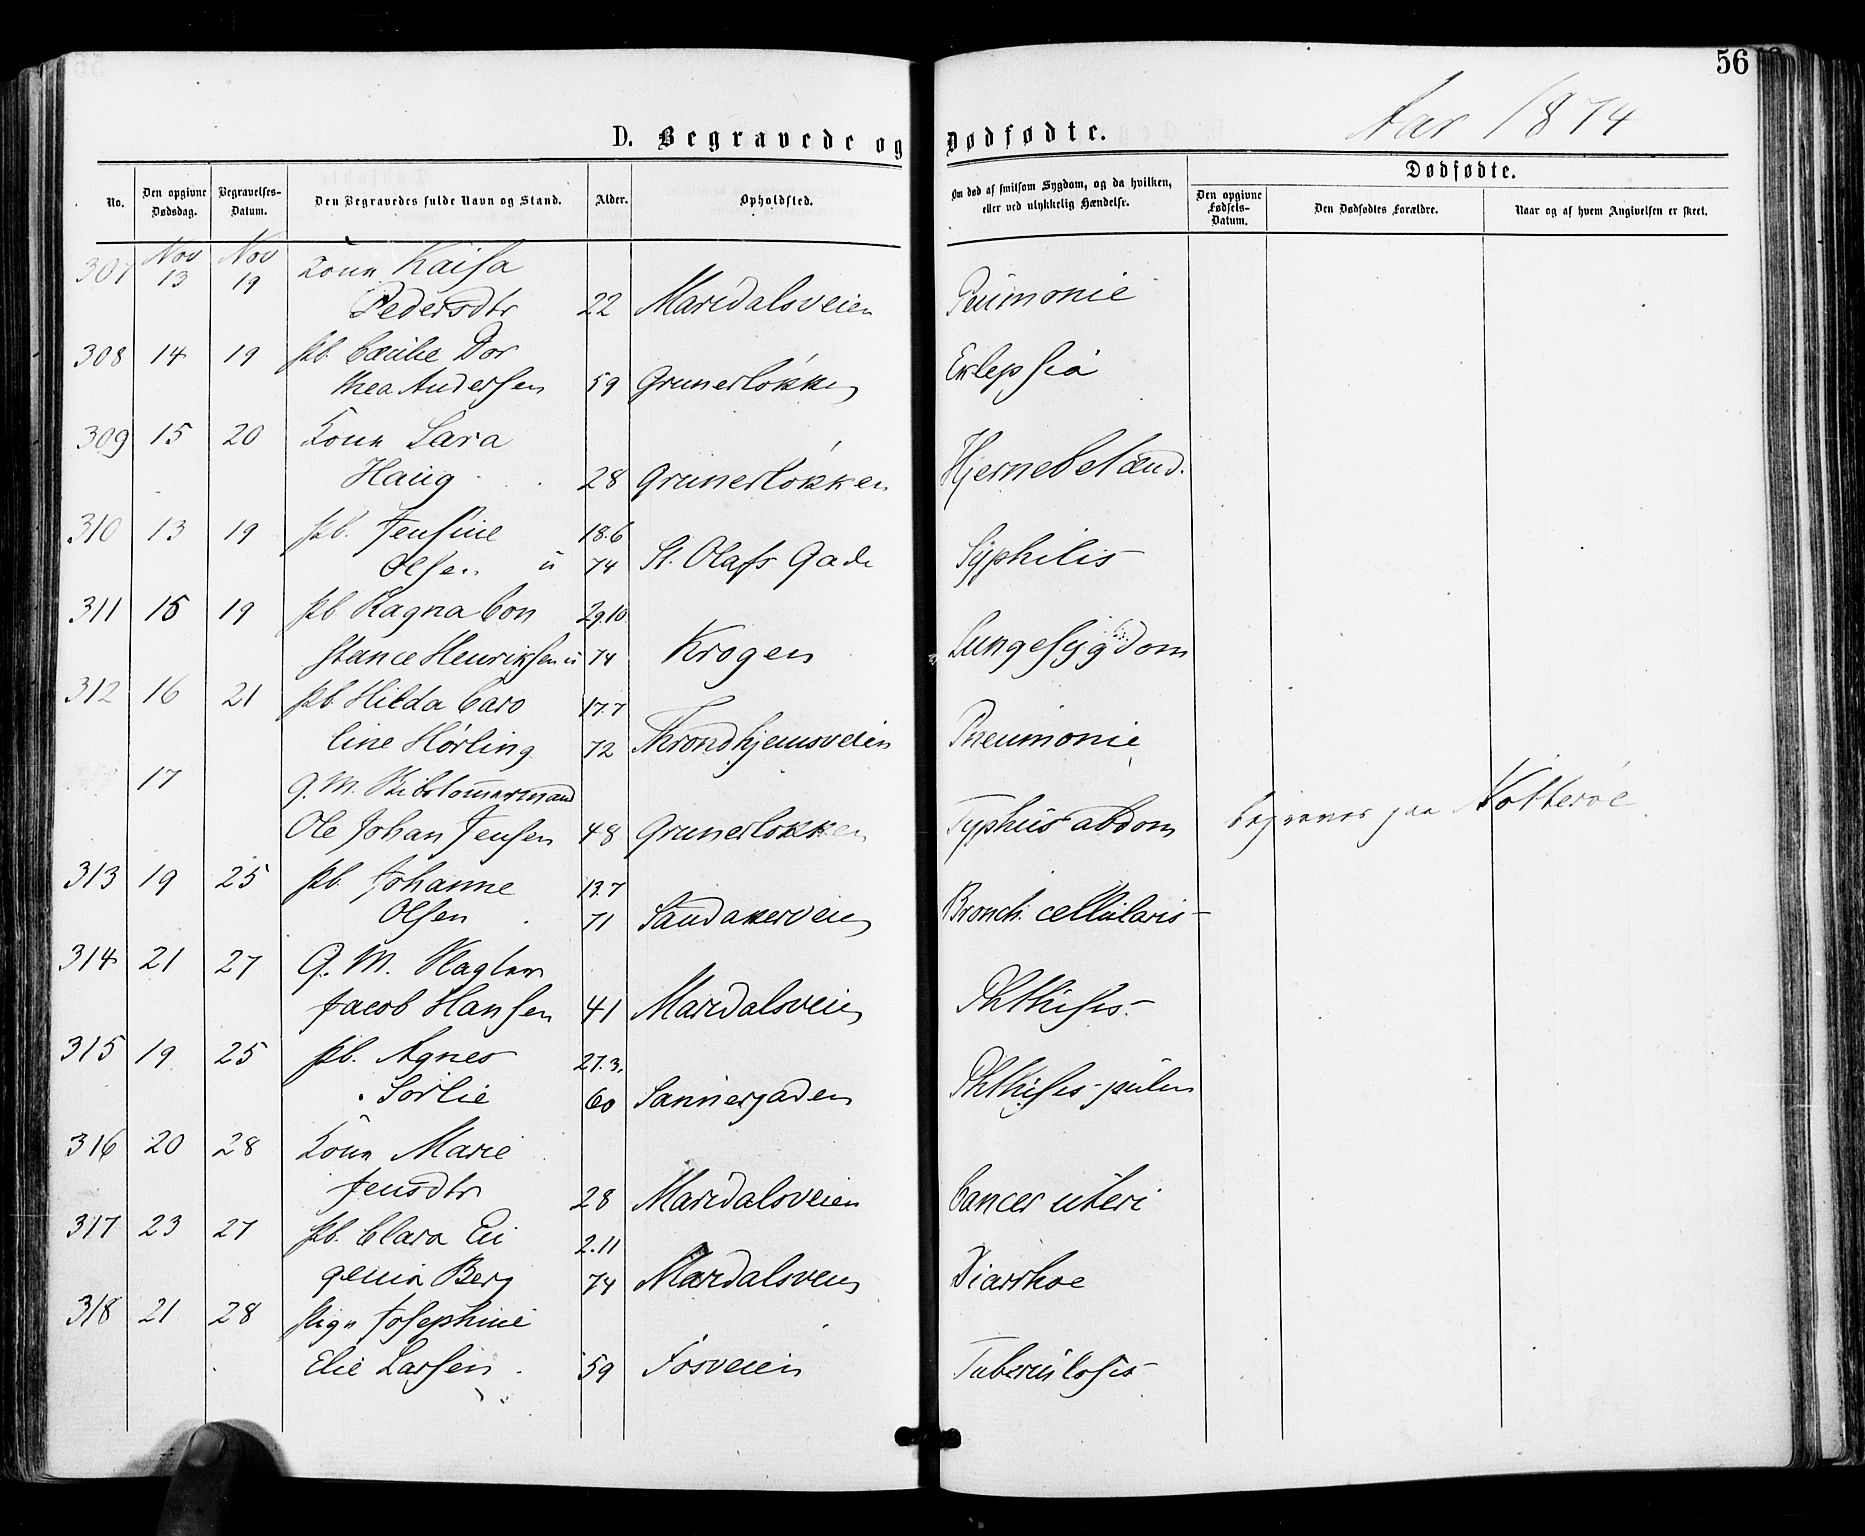 56
Aar 1874
D. Begravede og Dødfødte.
No. Den opgivne Dødsdag. Begravelses-Datum. Den Begravedes fulde Navn og Stand. Alder. Opholdsted. Om død af smitsom Sygdom, og da hvilken, eller ved ulykkelig Hændelse. Dødfødte.
Den opgivne Fødsels-Datum. Den Dødfødtes Forældre. Naar og af hvem Angivelsen er skeet.
307 Nov 13 Nov 19 Kone Kaisa
Pedersdtr 22 Maridalsveien Peumonie
308 14 19 pb. Cæcilie Dor
thea Andersen 59 Grunerløkken Eklepsia
309 15 20 Kone Sara
Haug 28 Grunerløkken Hjernebetænd.
310 13 19 pb. Jensine 18.6
Olsen u 74 St. Olafs Gade Syphilis
311 15 19 pb Ragna Con 29.10
stance Henriksen u 74 Krogen Lungesygdom
312 16 21 pb. Hilda Caro 17.7
line Hørling 72 Throndhjemsveien Pneumonie
17 G. M.
Ole Johan Jensen 48 Grunerløkken Typhus abdom begraves paa Nøtterøe
313 19 25 pb. Johanne 13.7
Olsen 71 Sandakerveien Bronch. cellularis
314 21 27 G. M. Vægter
Jacob Hansen 41 Maridalsveien Phthisis
315 19 25 pb. Agnes 27.3.
Sørlie 60 Sannergaden Phthisis pulm
316 20 28 Kone Marie
Jensdtr 28 Maridalsveien Cancer uteri
317 23 27 pb. Clara Eu 2.11
genia Berg 74 Maridalsveien Diarrhoe
318 21 28 Pige Josephine
Elie Larsen 59 Fosveien Tuberculosis